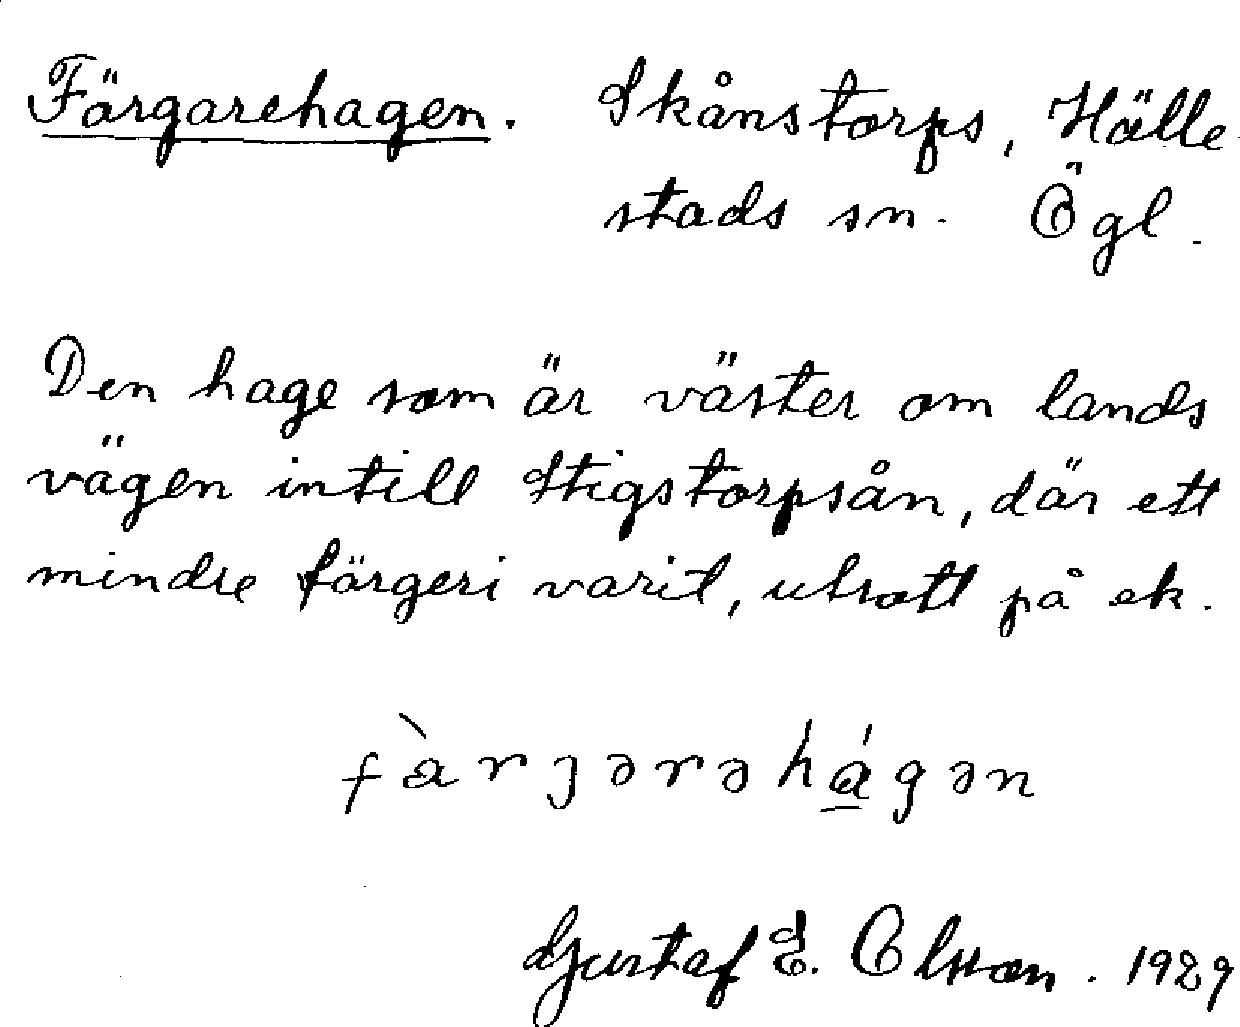 Färgarehagen. Skånstorps, Hälle
stads sn. Ögl.
Den hage som är väster om lands
vägen intill Stigstorpsån, där ett
mindre färgeri varit, utrott på ek.
fàrɟərəhágən
Gustaf E. Olsson. 1929